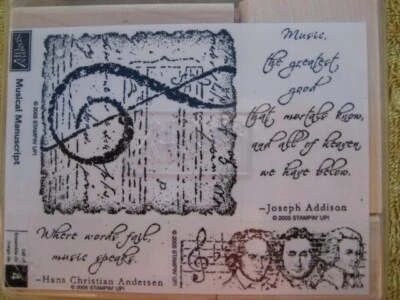 STAMPIN' UP!
Musical Manuscript
© 2005 STAMPIN' UP!
Music,
the greatest
good
that mortals know,
and all of heaven
we have below.
–Joseph Addison
© 2005 STAMPIN' UP!
Where words fail,
music speaks.
–Hans Christian Andersen
© 2005 STAMPIN' UP!
© 2005 STAMPIN' UP!
4